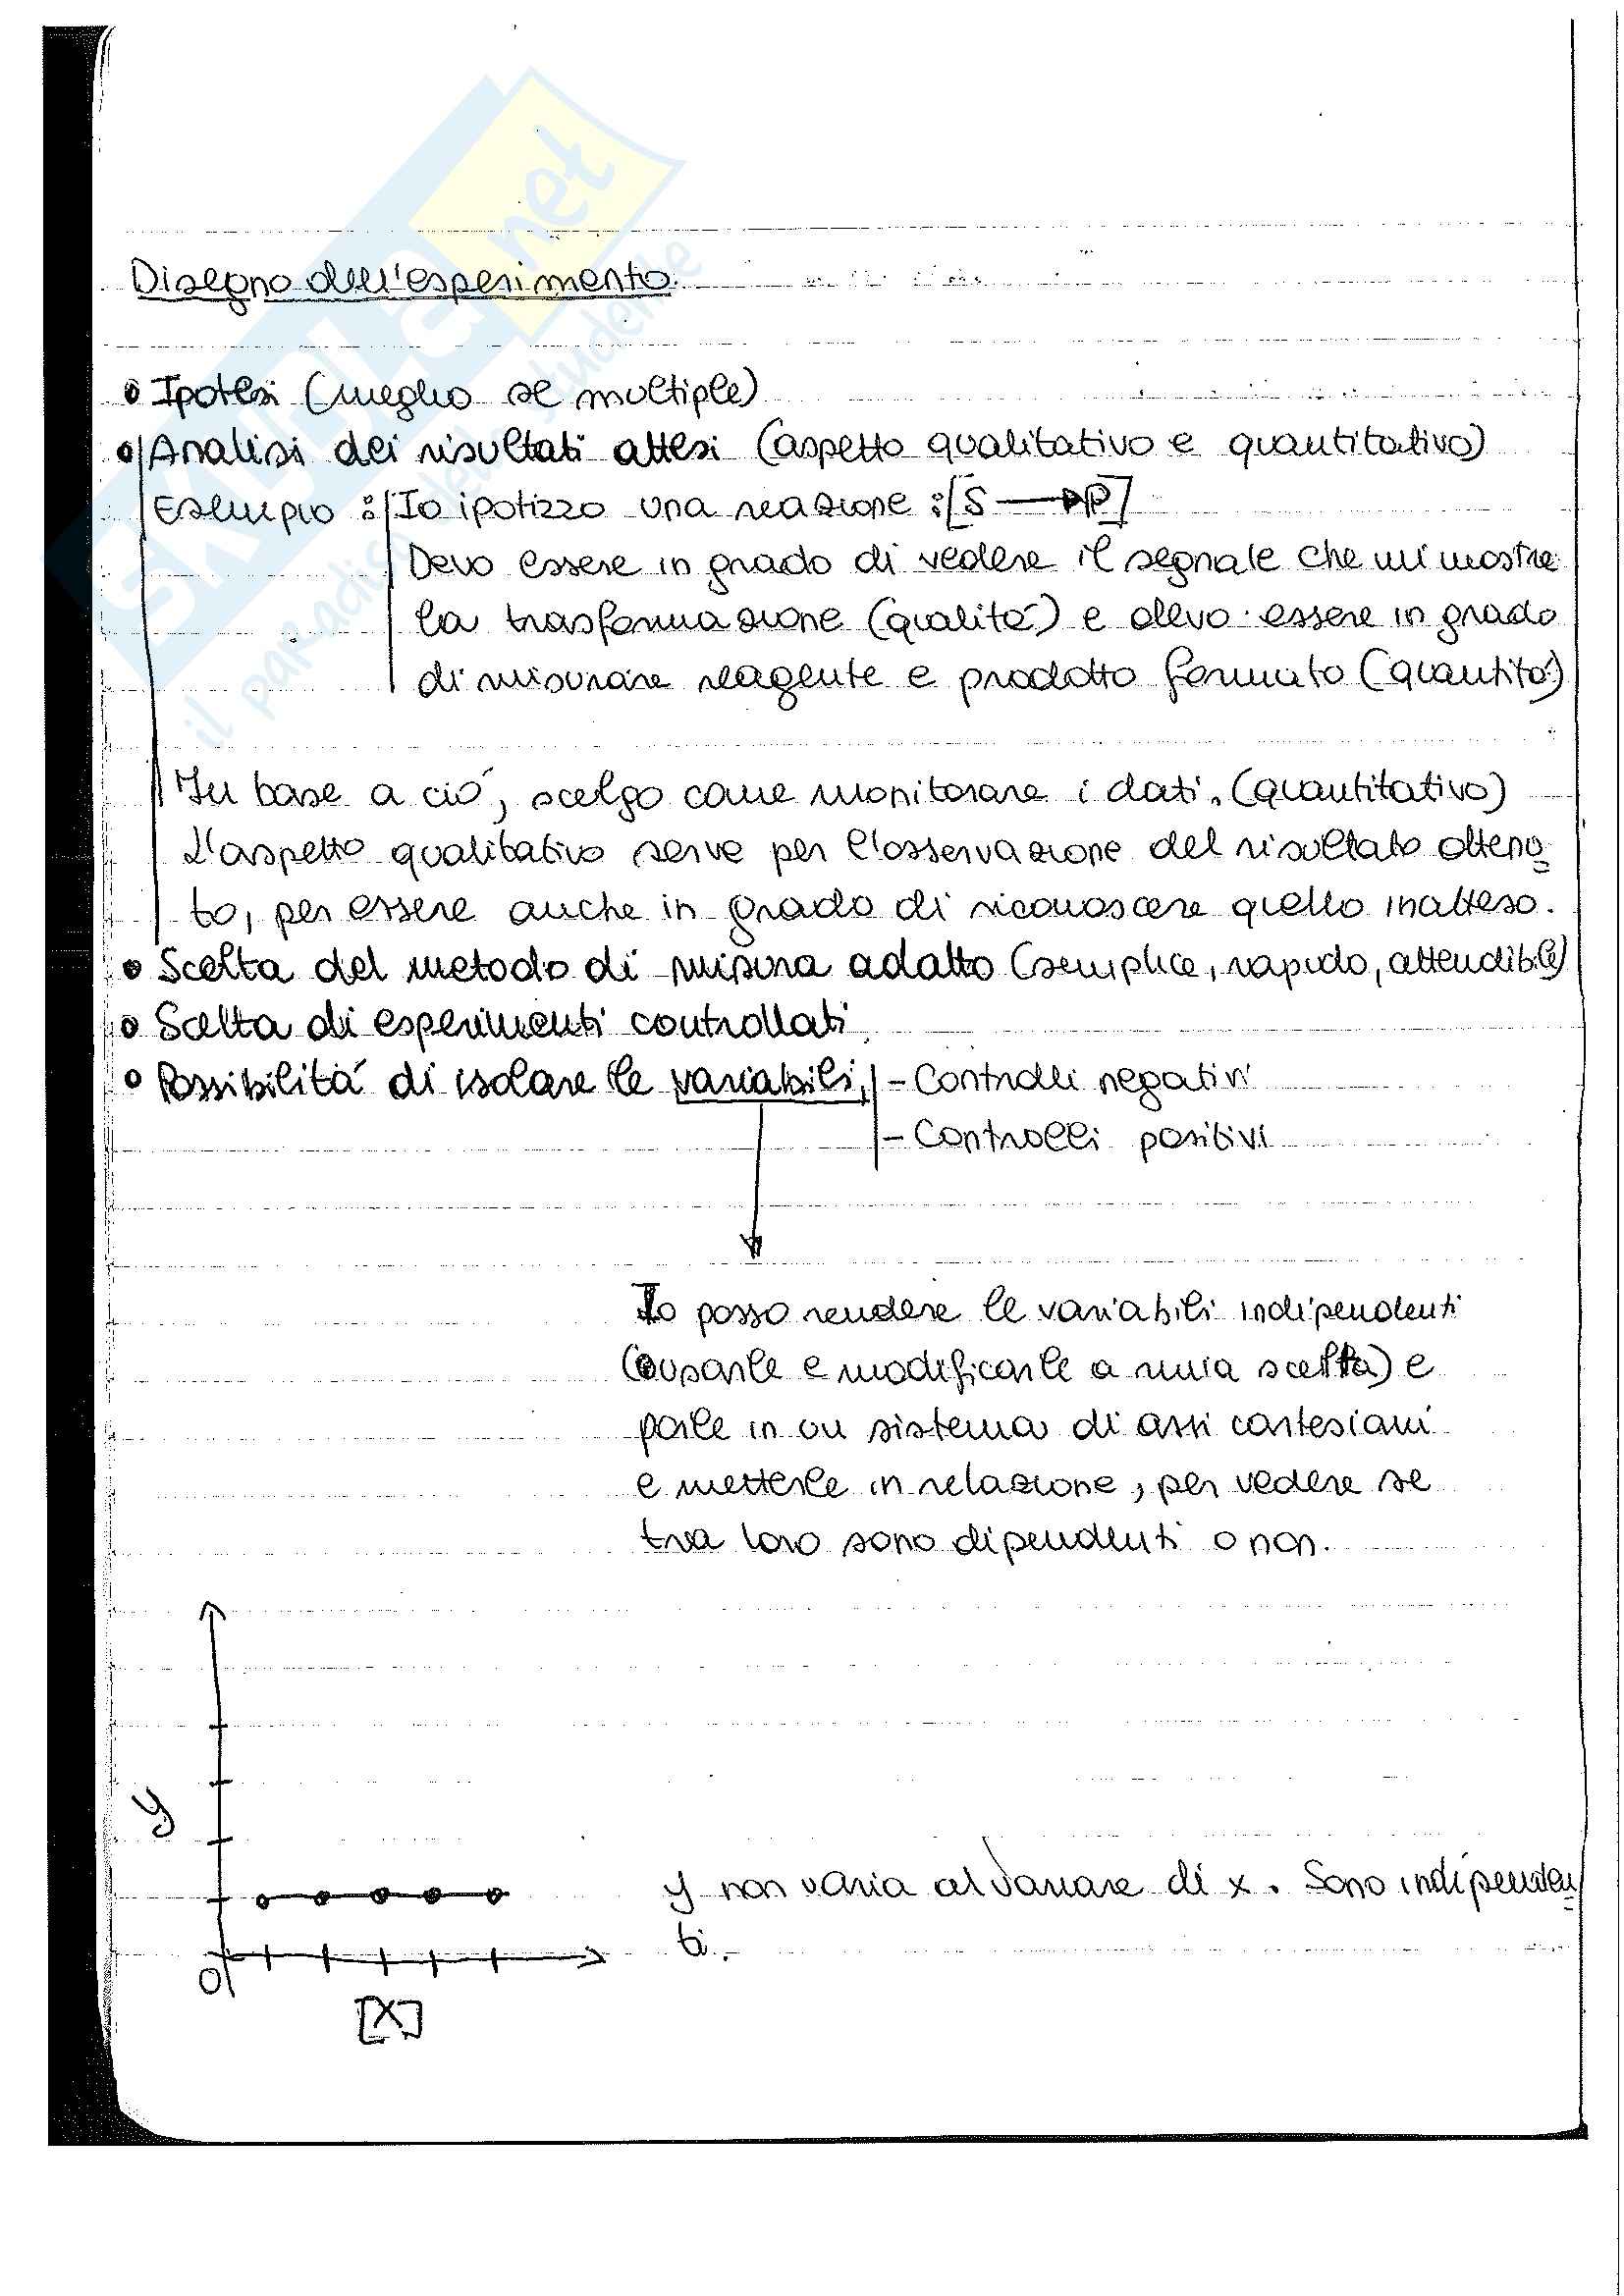 Disegno dell'esperimento.
• Ipotesi (meglio se multiple)
• Analisi dei risultati attesi (aspetto qualitativo e quantitativo)
Esempio: Io ipotizzo una reazione: [S → P]
Devo essere in grado di vedere il segnale che mi mostra
la trasformazione (qualità) e devo essere in grado
di misurare reagente e prodotto formato (quantità)
In base a ciò, scelgo come monitorare i dati. (quantitativo)
L'aspetto qualitativo serve per l'osservazione del risultato ottenu
to, per essere anche in grado di riconoscere quello inatteso.
• Scelta del metodo di misura adatto (semplice, rapido, attendibile)
• Scelta di esperimenti controllati.
• Possibilità di isolare le variabili, - Controlli negativi
- Controlli positivi
Io posso rendere le variabili indipendenti
(usarle e modificarle a mia scelta) e
porle in un sistema di assi cartesiani
e metterle in relazione, per vedere se
tra loro sono dipendenti o non.
y
y non varia al variare di x. Sono indipenden
ti.
0
[X]
SKUOLA.net
il paradiso dello studente